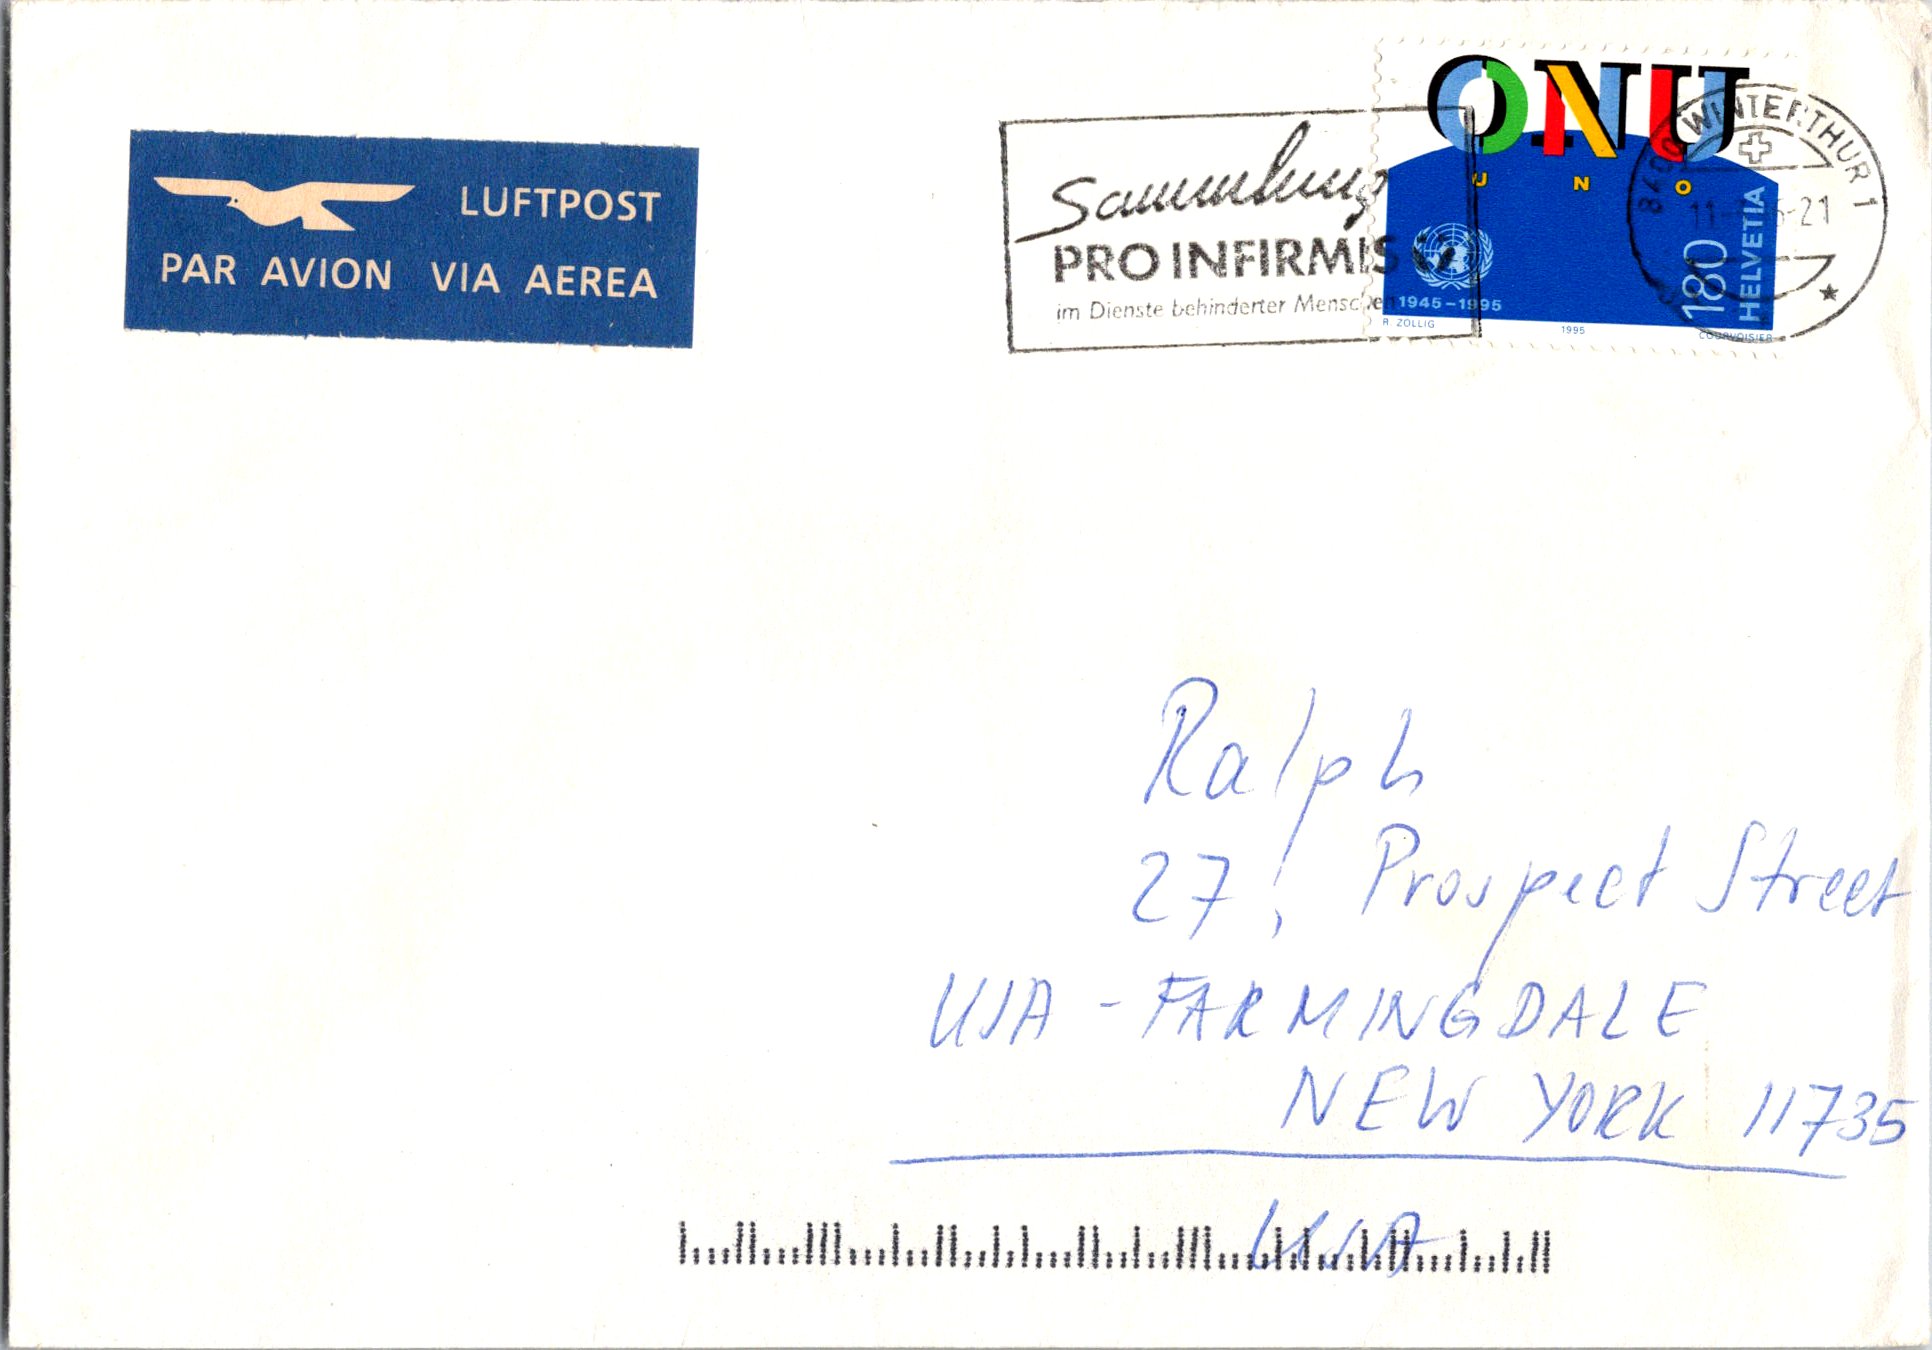 LUFTPOST
PAR AVION VIA AEREA
Sammlung
PRO INFIRMIS
im Dienste behinderter Menschen
ONU
U N O
1945-1995
180
HELVETIA
R. ZOLLIG
1995
COURVOISIER
8400 WINTERTHUR 1
-21
Ralph
27, Prospect Street
USA - FARMINGDALE
NEW YORK 11735
USA